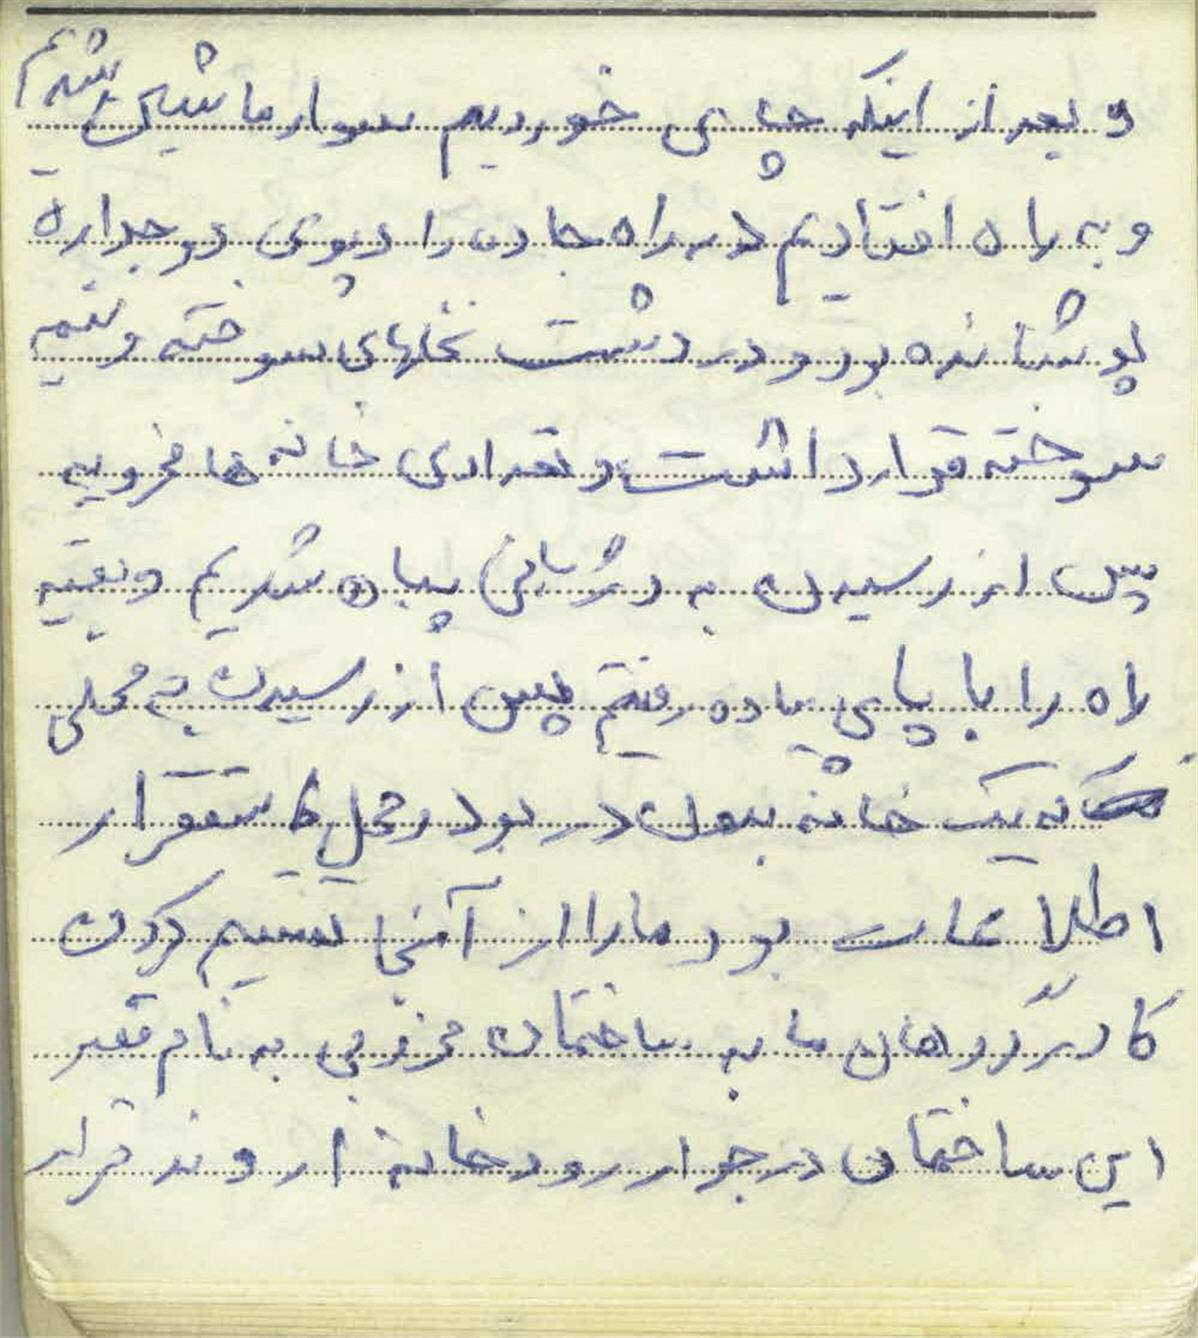 و بعد از اینکه چای خوردیم سوار ماشین شدیم
و به راه افتادیم در راه جاده را دپوی دو جداره
پوشانده بود و در دشت نخلهای سوخته و نیمه
سوخته قرار داشت و تعدادی خانه ها مخروبه
پس از رسیدن به دژبانی پیاده شدیم و بقیه
راه را با پای پیاده رفتیم پس از رسیدن به محلی
که یک خانه بدون در بود و محل استقرار
اطلاعات بود ما را از آنجا تقسیم کردن
ما به ساختمان مخروبی به نام قصر
این ساختمان در جوار رودخانه اروند قرار